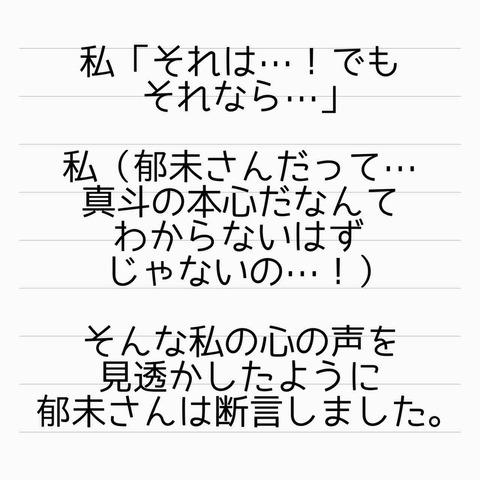 私「それは…！でも
それなら…」
私（郁未さんだって…
真斗の本心だなんて
わからないはず
じゃないの…！）
そんな私の心の声を
見透かしたように
郁未さんは断言しました。